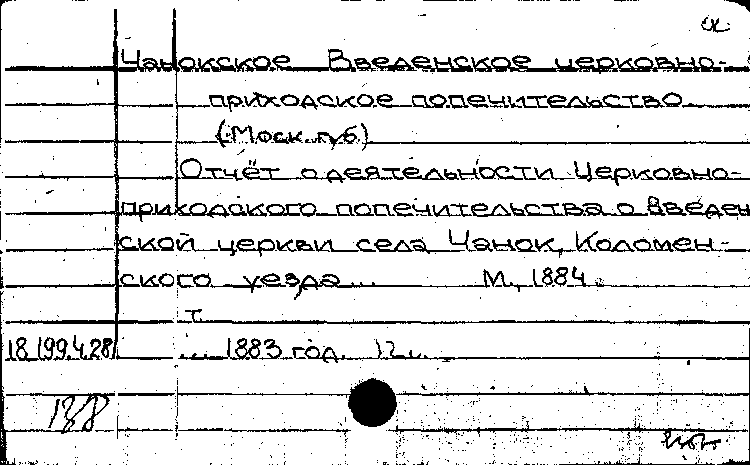 Чанокское Введенское церковно-
приходское попечительство.
(Моск. губ.)
Отчёт о деятельности Церковно-
приходского попечительства о Введен
ской церкви села Чанок, Коломен-
ского уезда... М., 1884.
т.
18.199.4.28. ... 1883 год. 12 с.
138